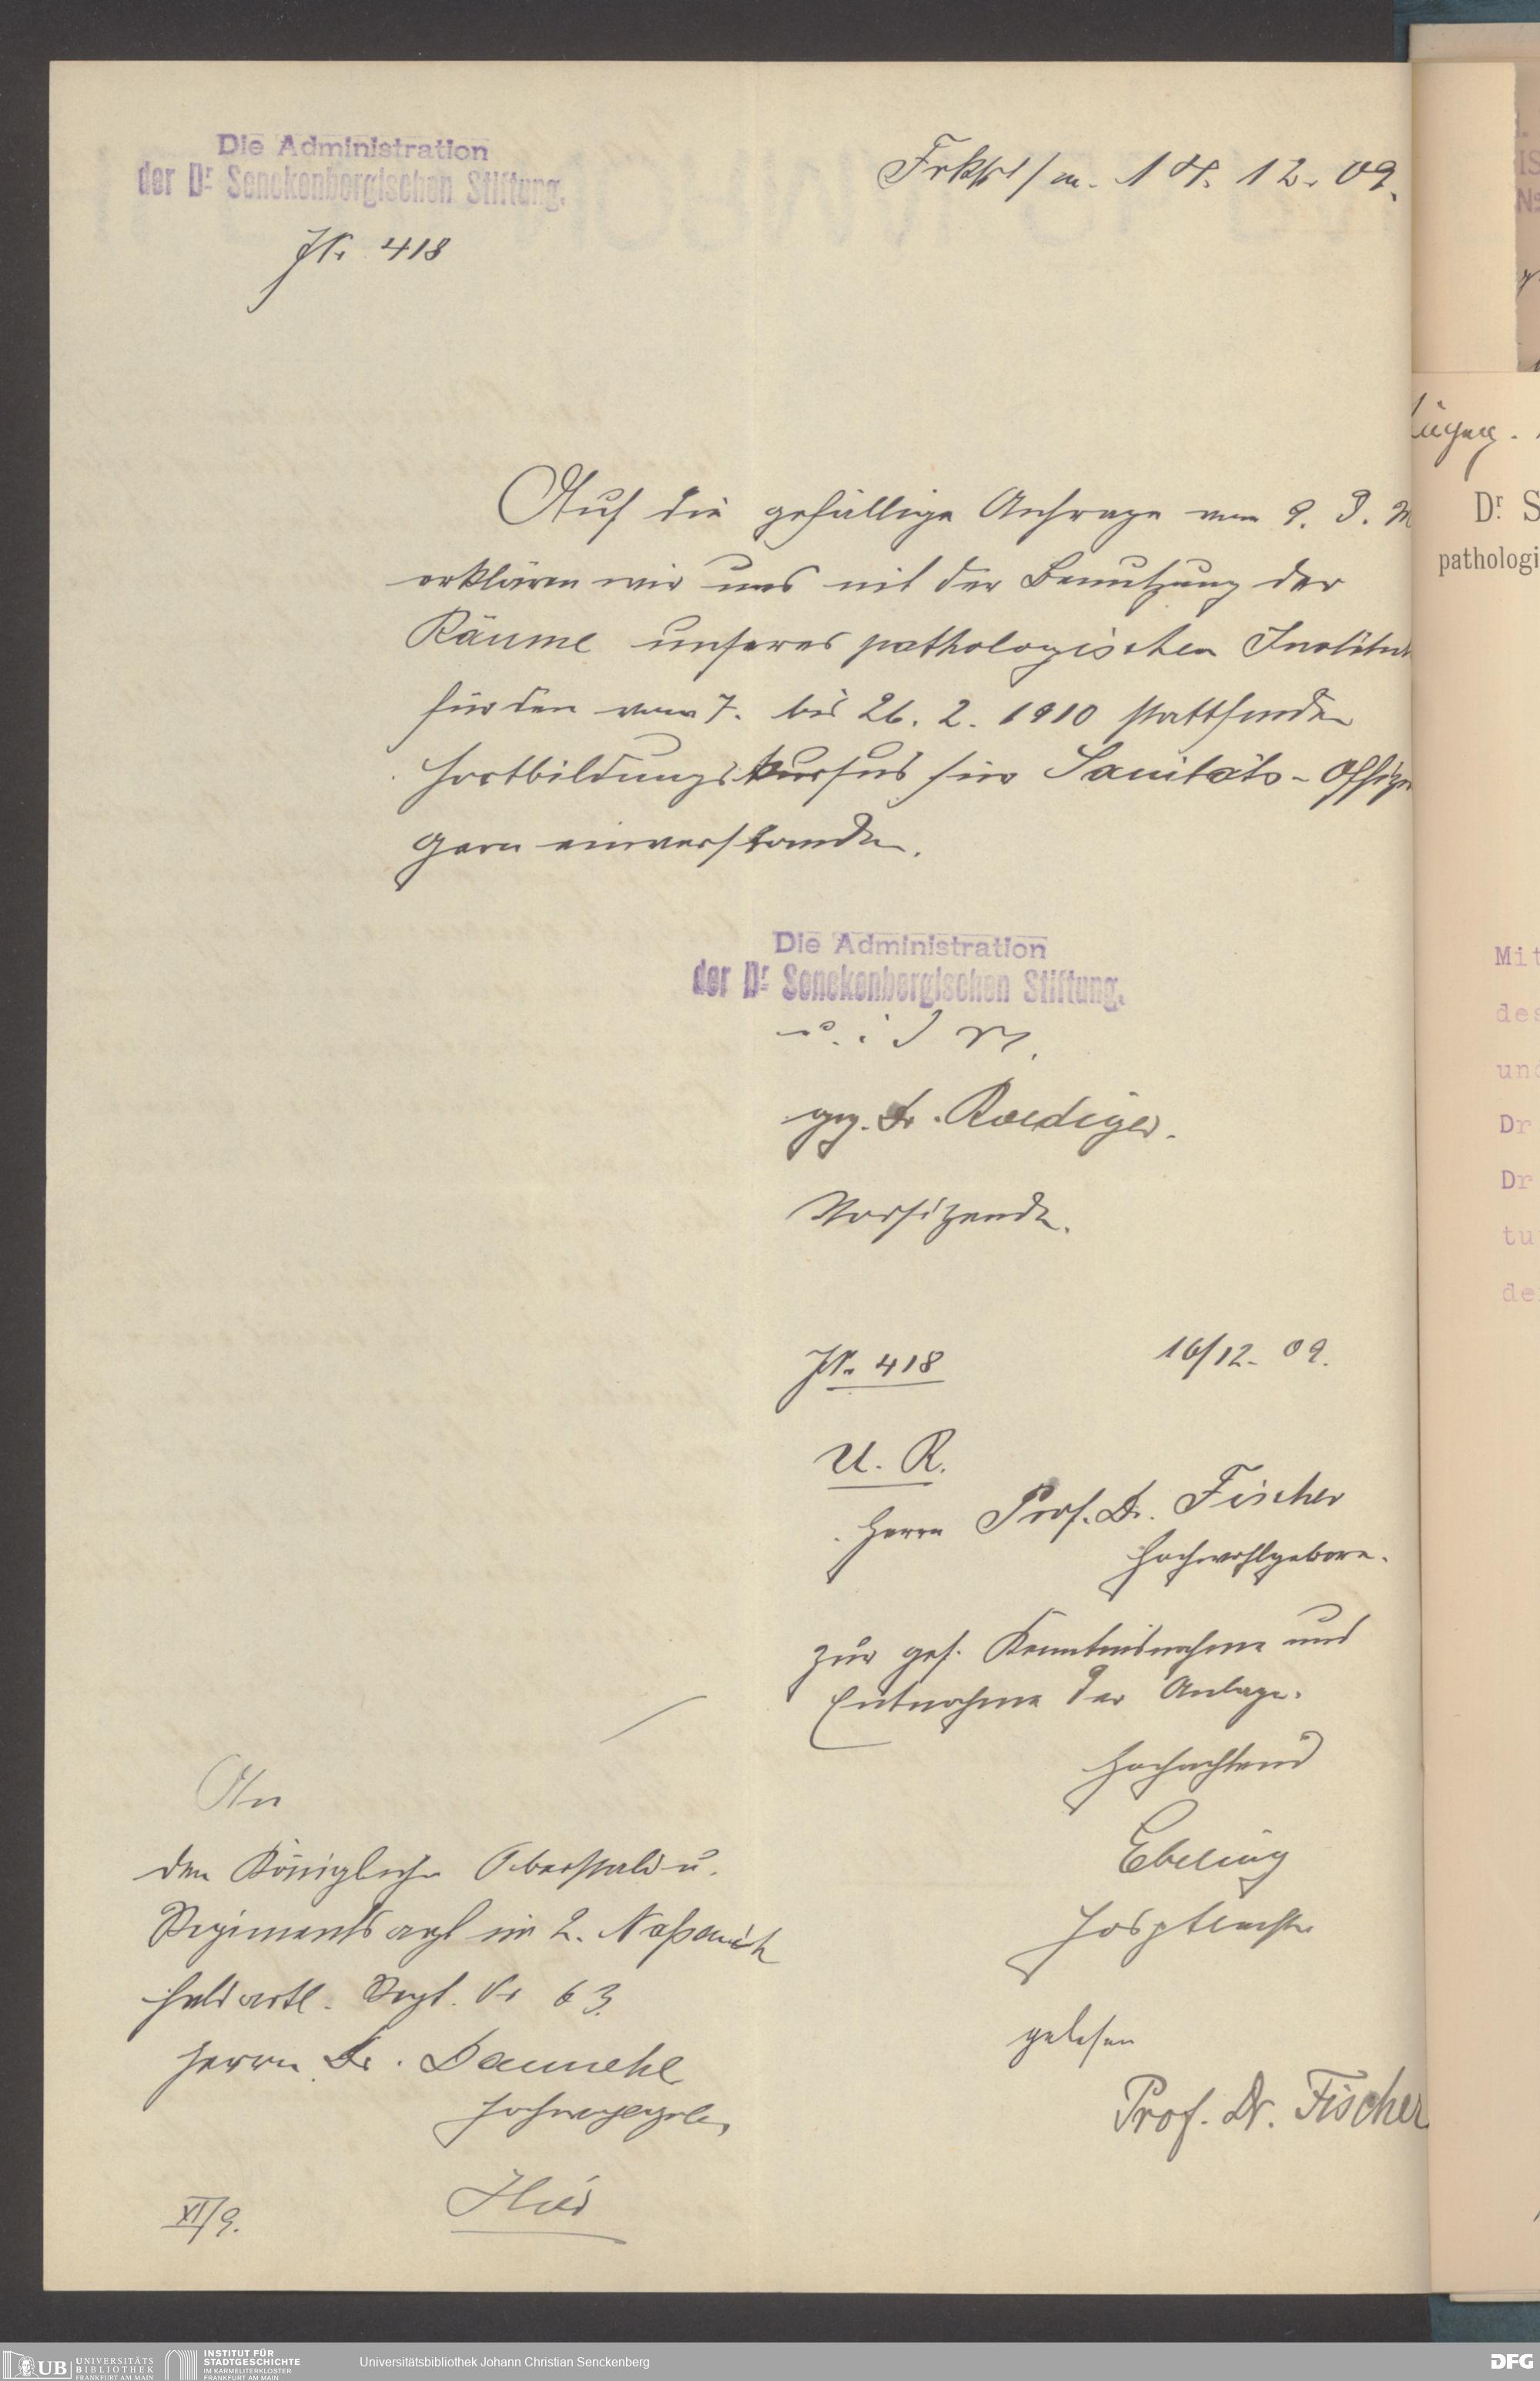 Die Administration
der Dr. Senckenbergischen Stiftung.
JN. 418
Frkft/m. 14. 12. 09.
Auf die gefällige Anfrage vom 9. d. M
erklären wir uns mit der Benutzung der
Räume unseres pathologischen Institut
für den vom 7. bis 26. 2. 1910 stattfinden
Fortbildungskursus für Sanitäts-Offizie
gern einverstanden.
Die Administration
der Dr. Senckenbergischen Stiftung.
gez. Dr. Roediger.
Vorsitzender.
JN. 418
16/12. 09.
U. R.
Herrn Prof. Dr. Fischer
Hochwohlgeboren.
zur gef. Kenntnisnahme und
Entnahme der Anlage.
Hochachtend
Ebeling
An
den Königlichen Oberstabs- u.
Regimentsarzt im 2. Nassauisch
Feldartl. Regt. Nr 63
Herrn Dr. Dannehl
Hier
XI/9.
gelesen
Prof. Dr. Fischer
Dr. S
pathologi
Mit
des
und
Dr
Dr
tu
de
UB UNIVERSITÄTS
BIBLIOTHEK
FRANKFURT AM MAIN
INSTITUT FÜR
STADTGESCHICHTE
IM KARMELITERKLOSTER
FRANKFURT AM MAIN
Universitätsbibliothek Johann Christian Senckenberg
DFG